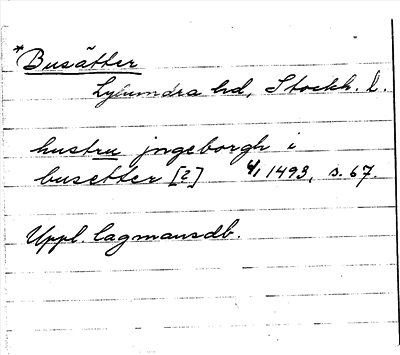 *Busätter
Lyhundra hd, Stockh. l.
hustru jngeborgh i
busetter [?] 4/1 1493, s. 67.
Uppl. lagmansdb.